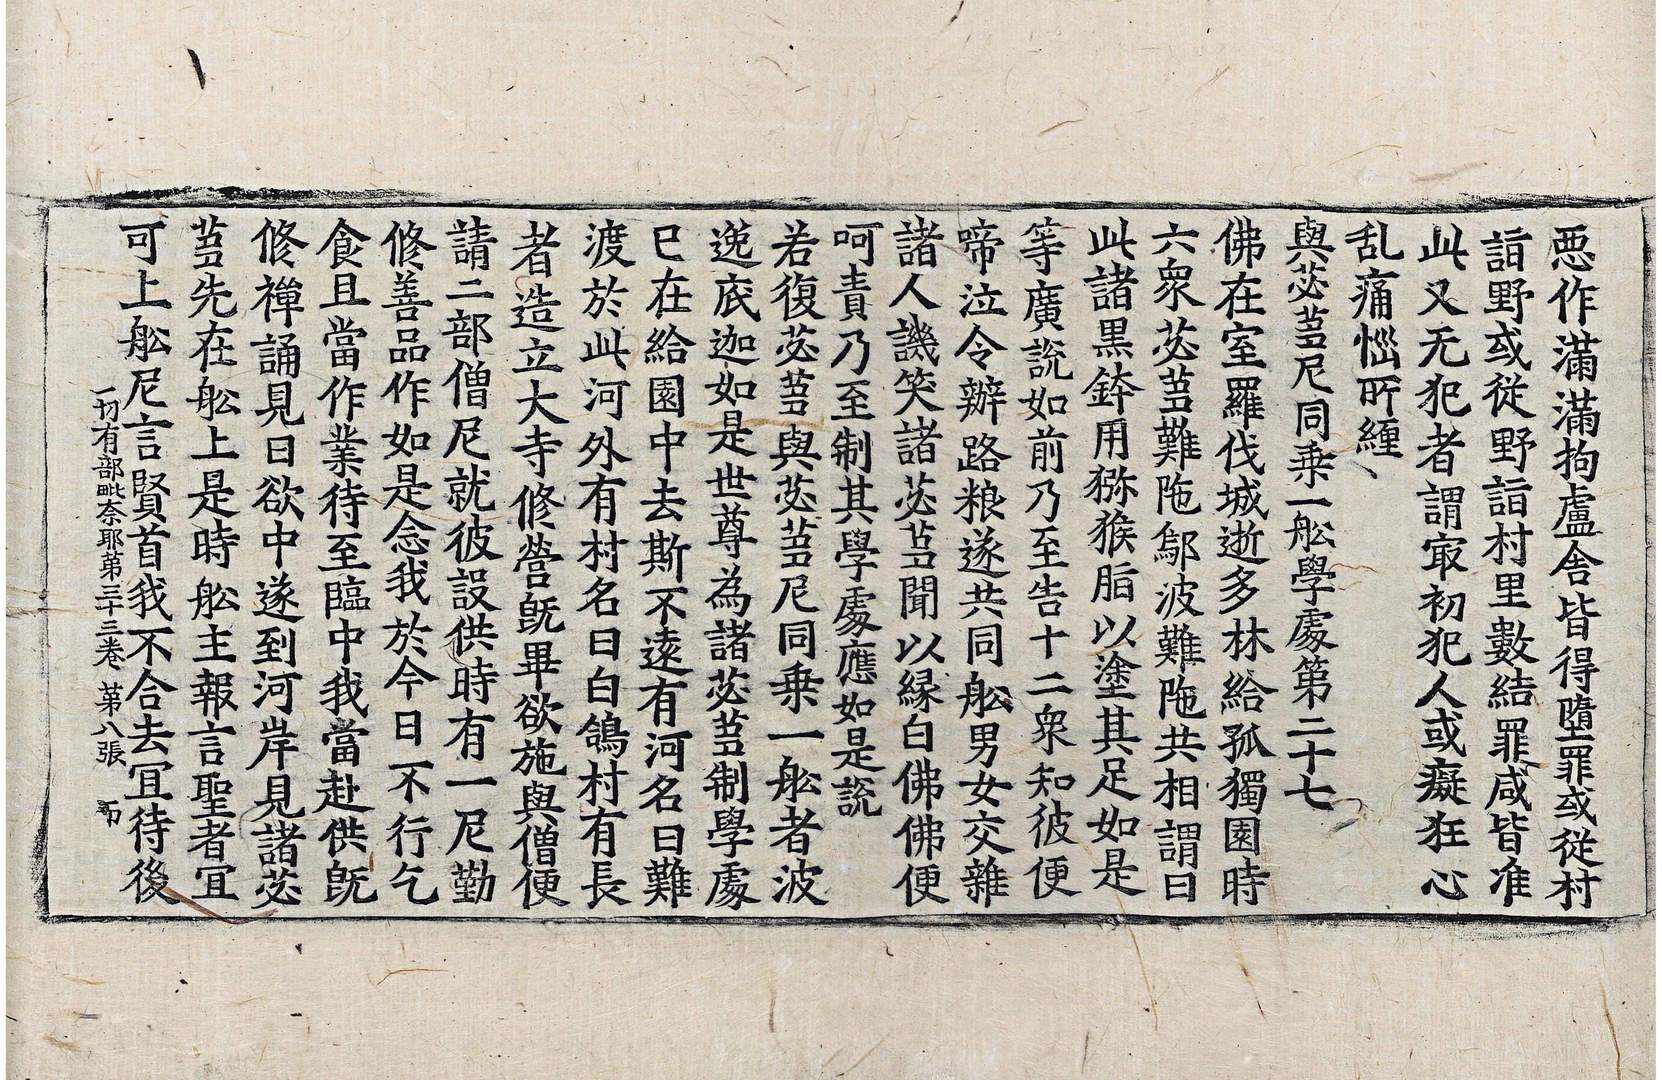 惡作滿滿拘盧舍皆得墮罪或從村
詣野或從野詣村里數結罪咸皆准
此又无犯者謂㝡初犯人或癡狂心
乱痛惱所纏
與苾蒭尼同乗一舩學處第二十七
佛在室羅伐城逝多林給孤獨園時
六衆苾蒭難陁鄔波難陁共相謂曰
此諸黒鉢用猕猴脂以塗其足如是
等廣說如前乃至告十二衆知彼便
啼泣令辦路粮遂共同舩男女交雜
諸人譏笑諸苾蒭聞以縁白佛佛便
呵責乃至制其學處應如是說
若復苾蒭與苾蒭尼同乗一舩者波
逸底迦如是世尊為諸苾蒭制學處
已在給園中去斯不遠有河名曰難
渡於此河外有村名曰白鴿村有長
者造立大寺修營旣畢欲施與僧便
請二部僧尼就彼設供時有一尼勤
修善品作如是念我於今日不行乞
食且當作業待至臨中我當赴供旣
修禪誦見日欲中遂到河岸見諸苾
蒭先在舩上是時舩主報言聖者冝
可上舩尼言賢首我不合去冝待後
一切有部毗奈耶第三十三卷 第八張